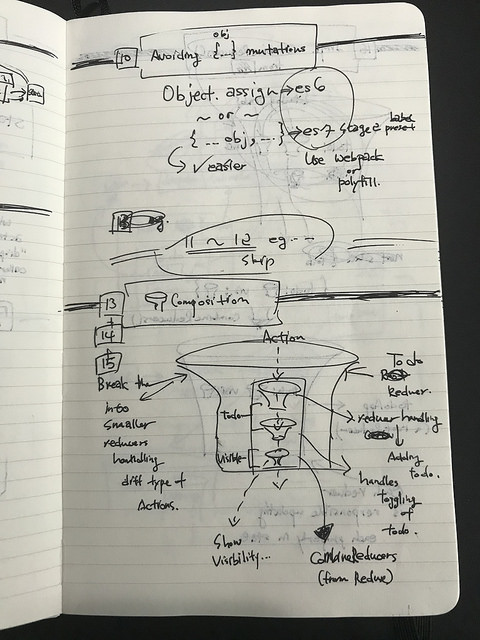 obj
10 Avoiding {...} mutations
Object. assign → es6
~ or ~
{ ... obj, ... } → es7 stage 2 babel preset
↳ ✓ easier
Use webpack
or
polyfill.
11 ~ 12 eg...
skip
13 Composition
14
15
Action
Break the
into
smaller
reducers
handling
diff type of
Actions.
todo
visible
Todo
Reducer.
reducer handling
Adding
todo.
handles
toggling
of
todo.
Show
Visibility...
CombineReducers
(from Redux)